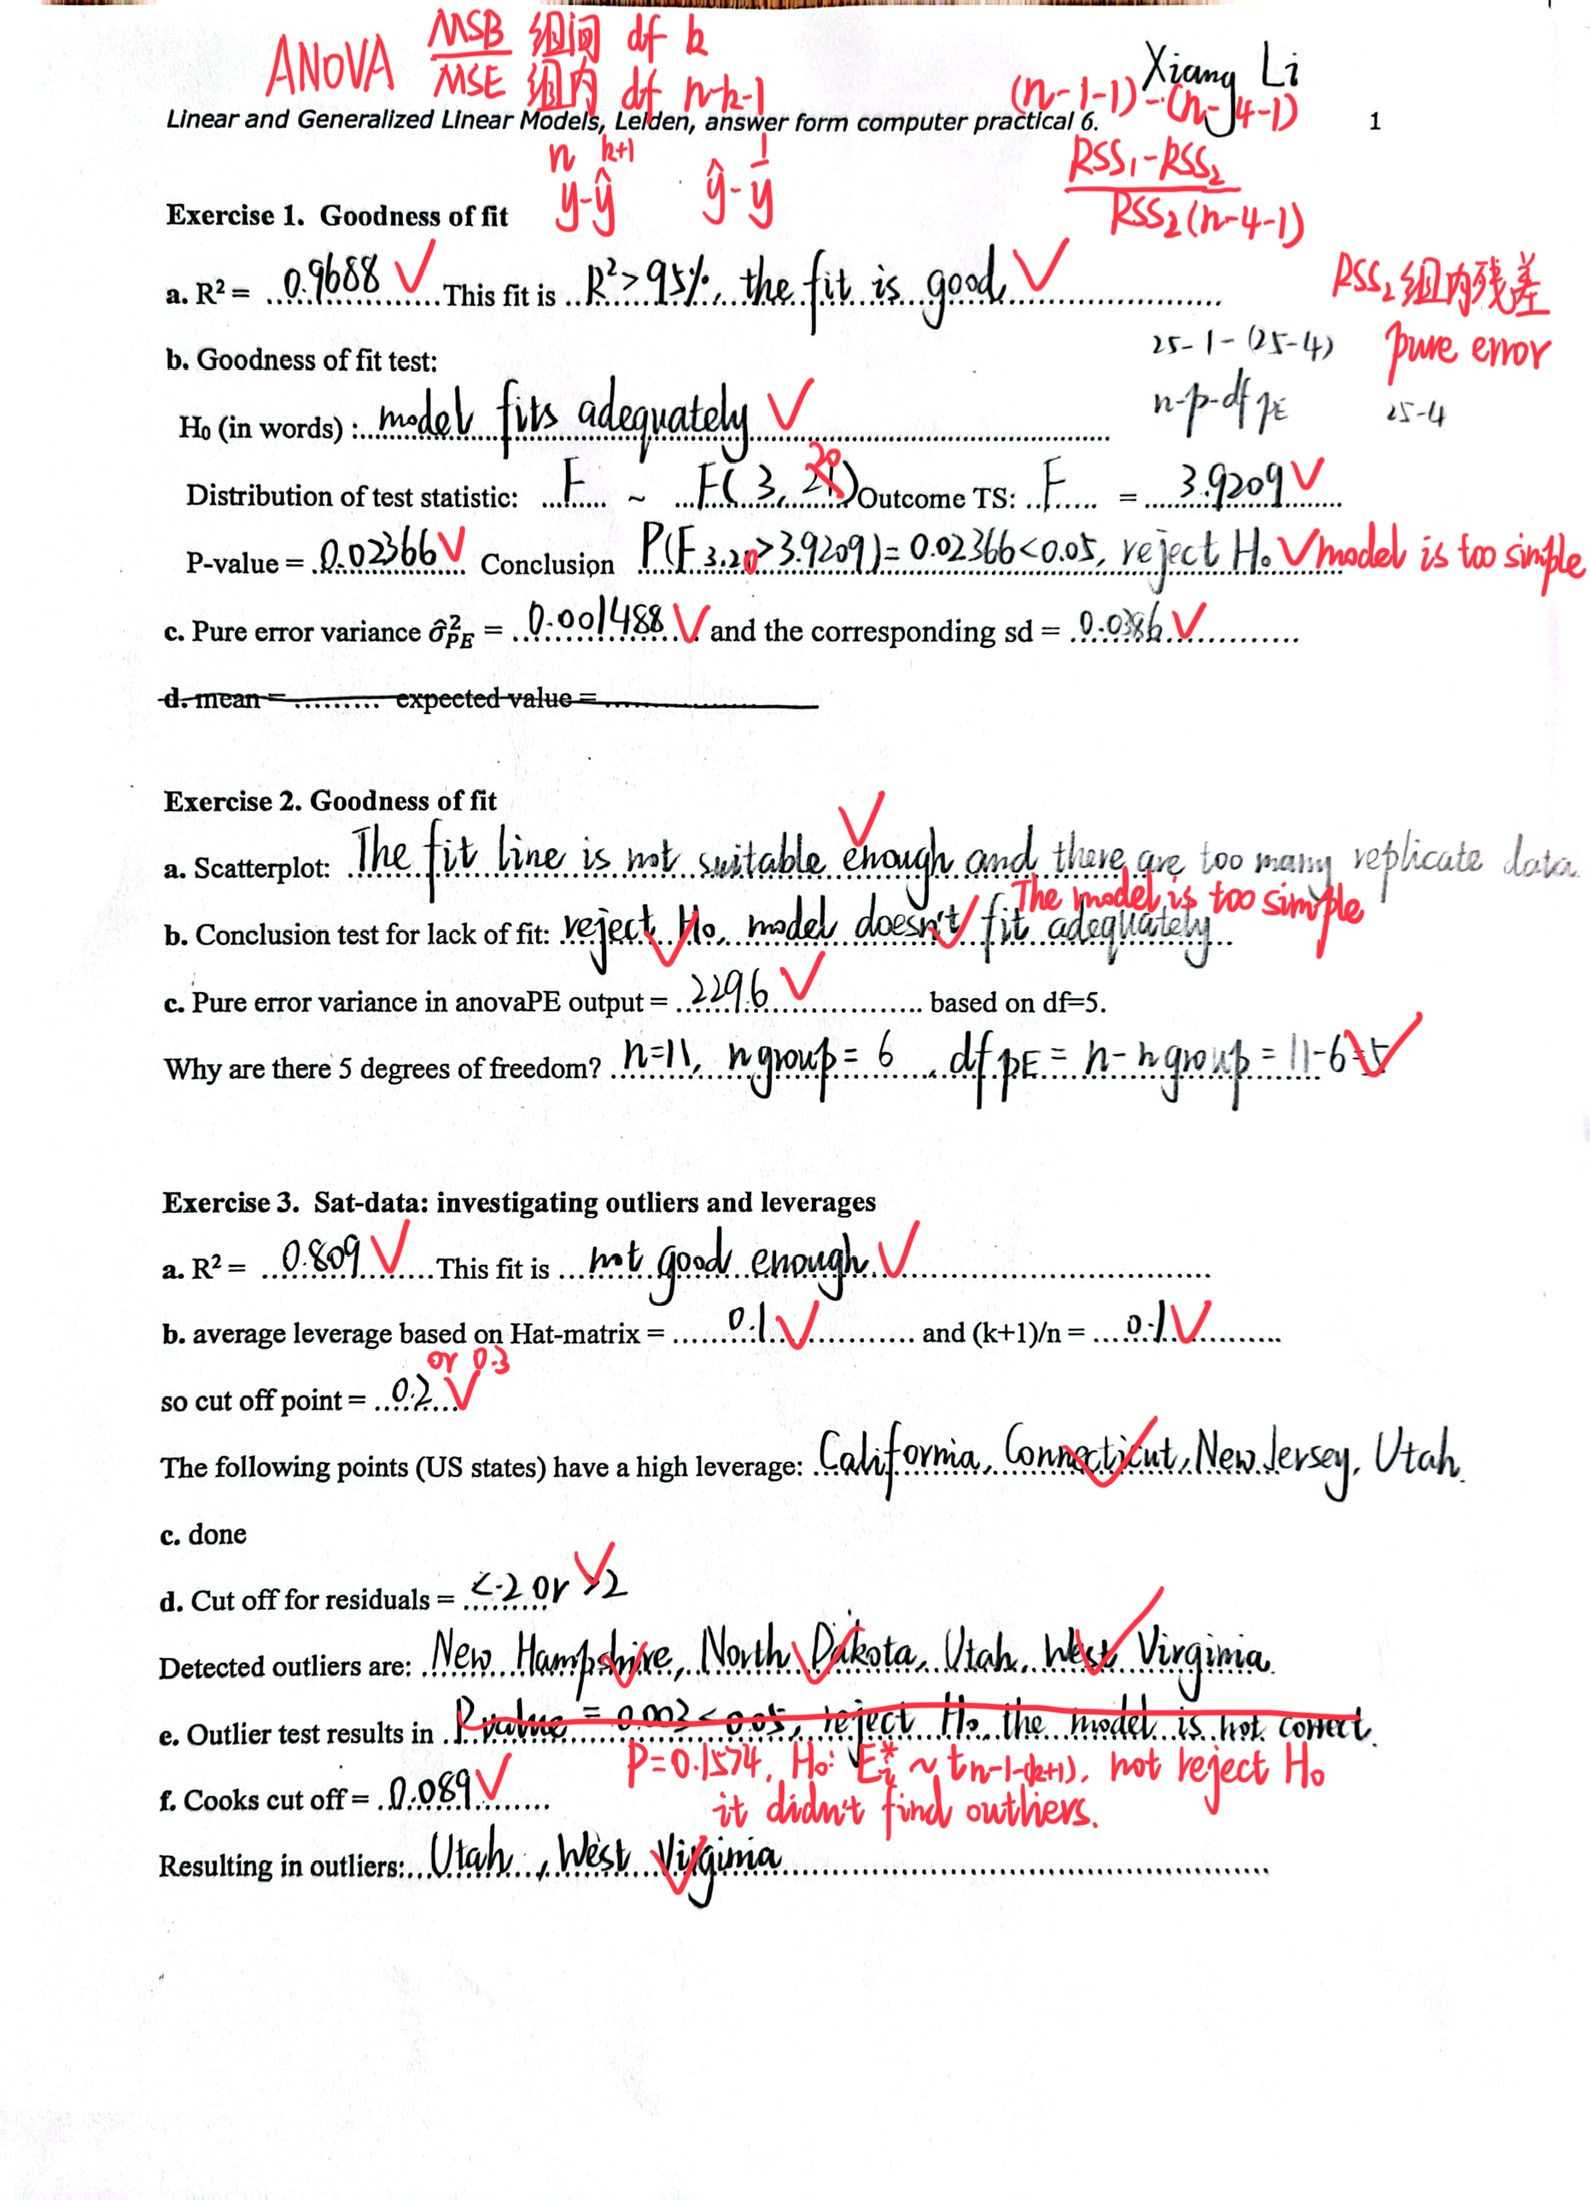 ANOVA MSB 组间 df k
MSE 组内 df n-k-1
Xiang Li
(n-1-1)-(n-4-1)
Linear and Generalized Linear Models, Leiden, answer form computer practical 6. 1
n k+1 1
y-ŷ ŷ-ȳ
RSS₁-RSS₂
RSS₂(n-4-1)
Exercise 1. Goodness of fit
a. R² = 0.9688 ✓ This fit is R²>95%, the fit is good ✓
RSS₂组内残差
pure error
b. Goodness of fit test:
25-1-(25-4)
n-p-df PE 25-4
H₀ (in words) : model fits adequately ✓
20
Distribution of test statistic: F ~ F( 3, 21) Outcome TS: F = 3.9209 ✓
P-value = 0.02366 ✓ Conclusion P(F 3.20>3.9209)= 0.02366<0.05, reject H₀ ✓ model is too simple
c. Pure error variance σ̂²PE = 0.001488 ✓ and the corresponding sd = 0.0386 ✓
d. mean = ......... expected value =
Exercise 2. Goodness of fit
a. Scatterplot: The fit line is not suitable enough and there are too many replicate data.
The model is too simple
b. Conclusion test for lack of fit: reject H₀, model doesn't fit adequately
c. Pure error variance in anovaPE output = 2296 ✓ based on df=5.
Why are there 5 degrees of freedom? n=11, n group = 6, df PE = n- n group = 11-6=5
Exercise 3. Sat-data: investigating outliers and leverages
a. R² = 0.809 ✓ This fit is not good enough. ✓
b. average leverage based on Hat-matrix = 0.1 ✓ and (k+1)/n = 0.1 ✓
or 0.3
so cut off point = 0.2 ✓
The following points (US states) have a high leverage: California, Connecticut, New Jersey, Utah.
c. done
d. Cut off for residuals = <-2 or >2
Detected outliers are: New Hampshire, North Dakota, Utah, West Virginia.
e. Outlier test results in P value = 0.003 < 0.05, reject H₀. the model is not correct.
P=0.1574, H₀: Eᵢ* ~ t n-1-(k+1), not reject H₀
f. Cooks cut off = 0.089 ✓
it didn't find outliers.
Resulting in outliers: Utah, West Virginia